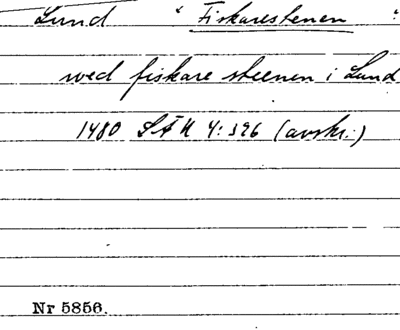 Lund " Fiskarestenen "
wed fiskare steenen i Lund
1480 SÄH 4:396 (avskr.)
Nr 5856.